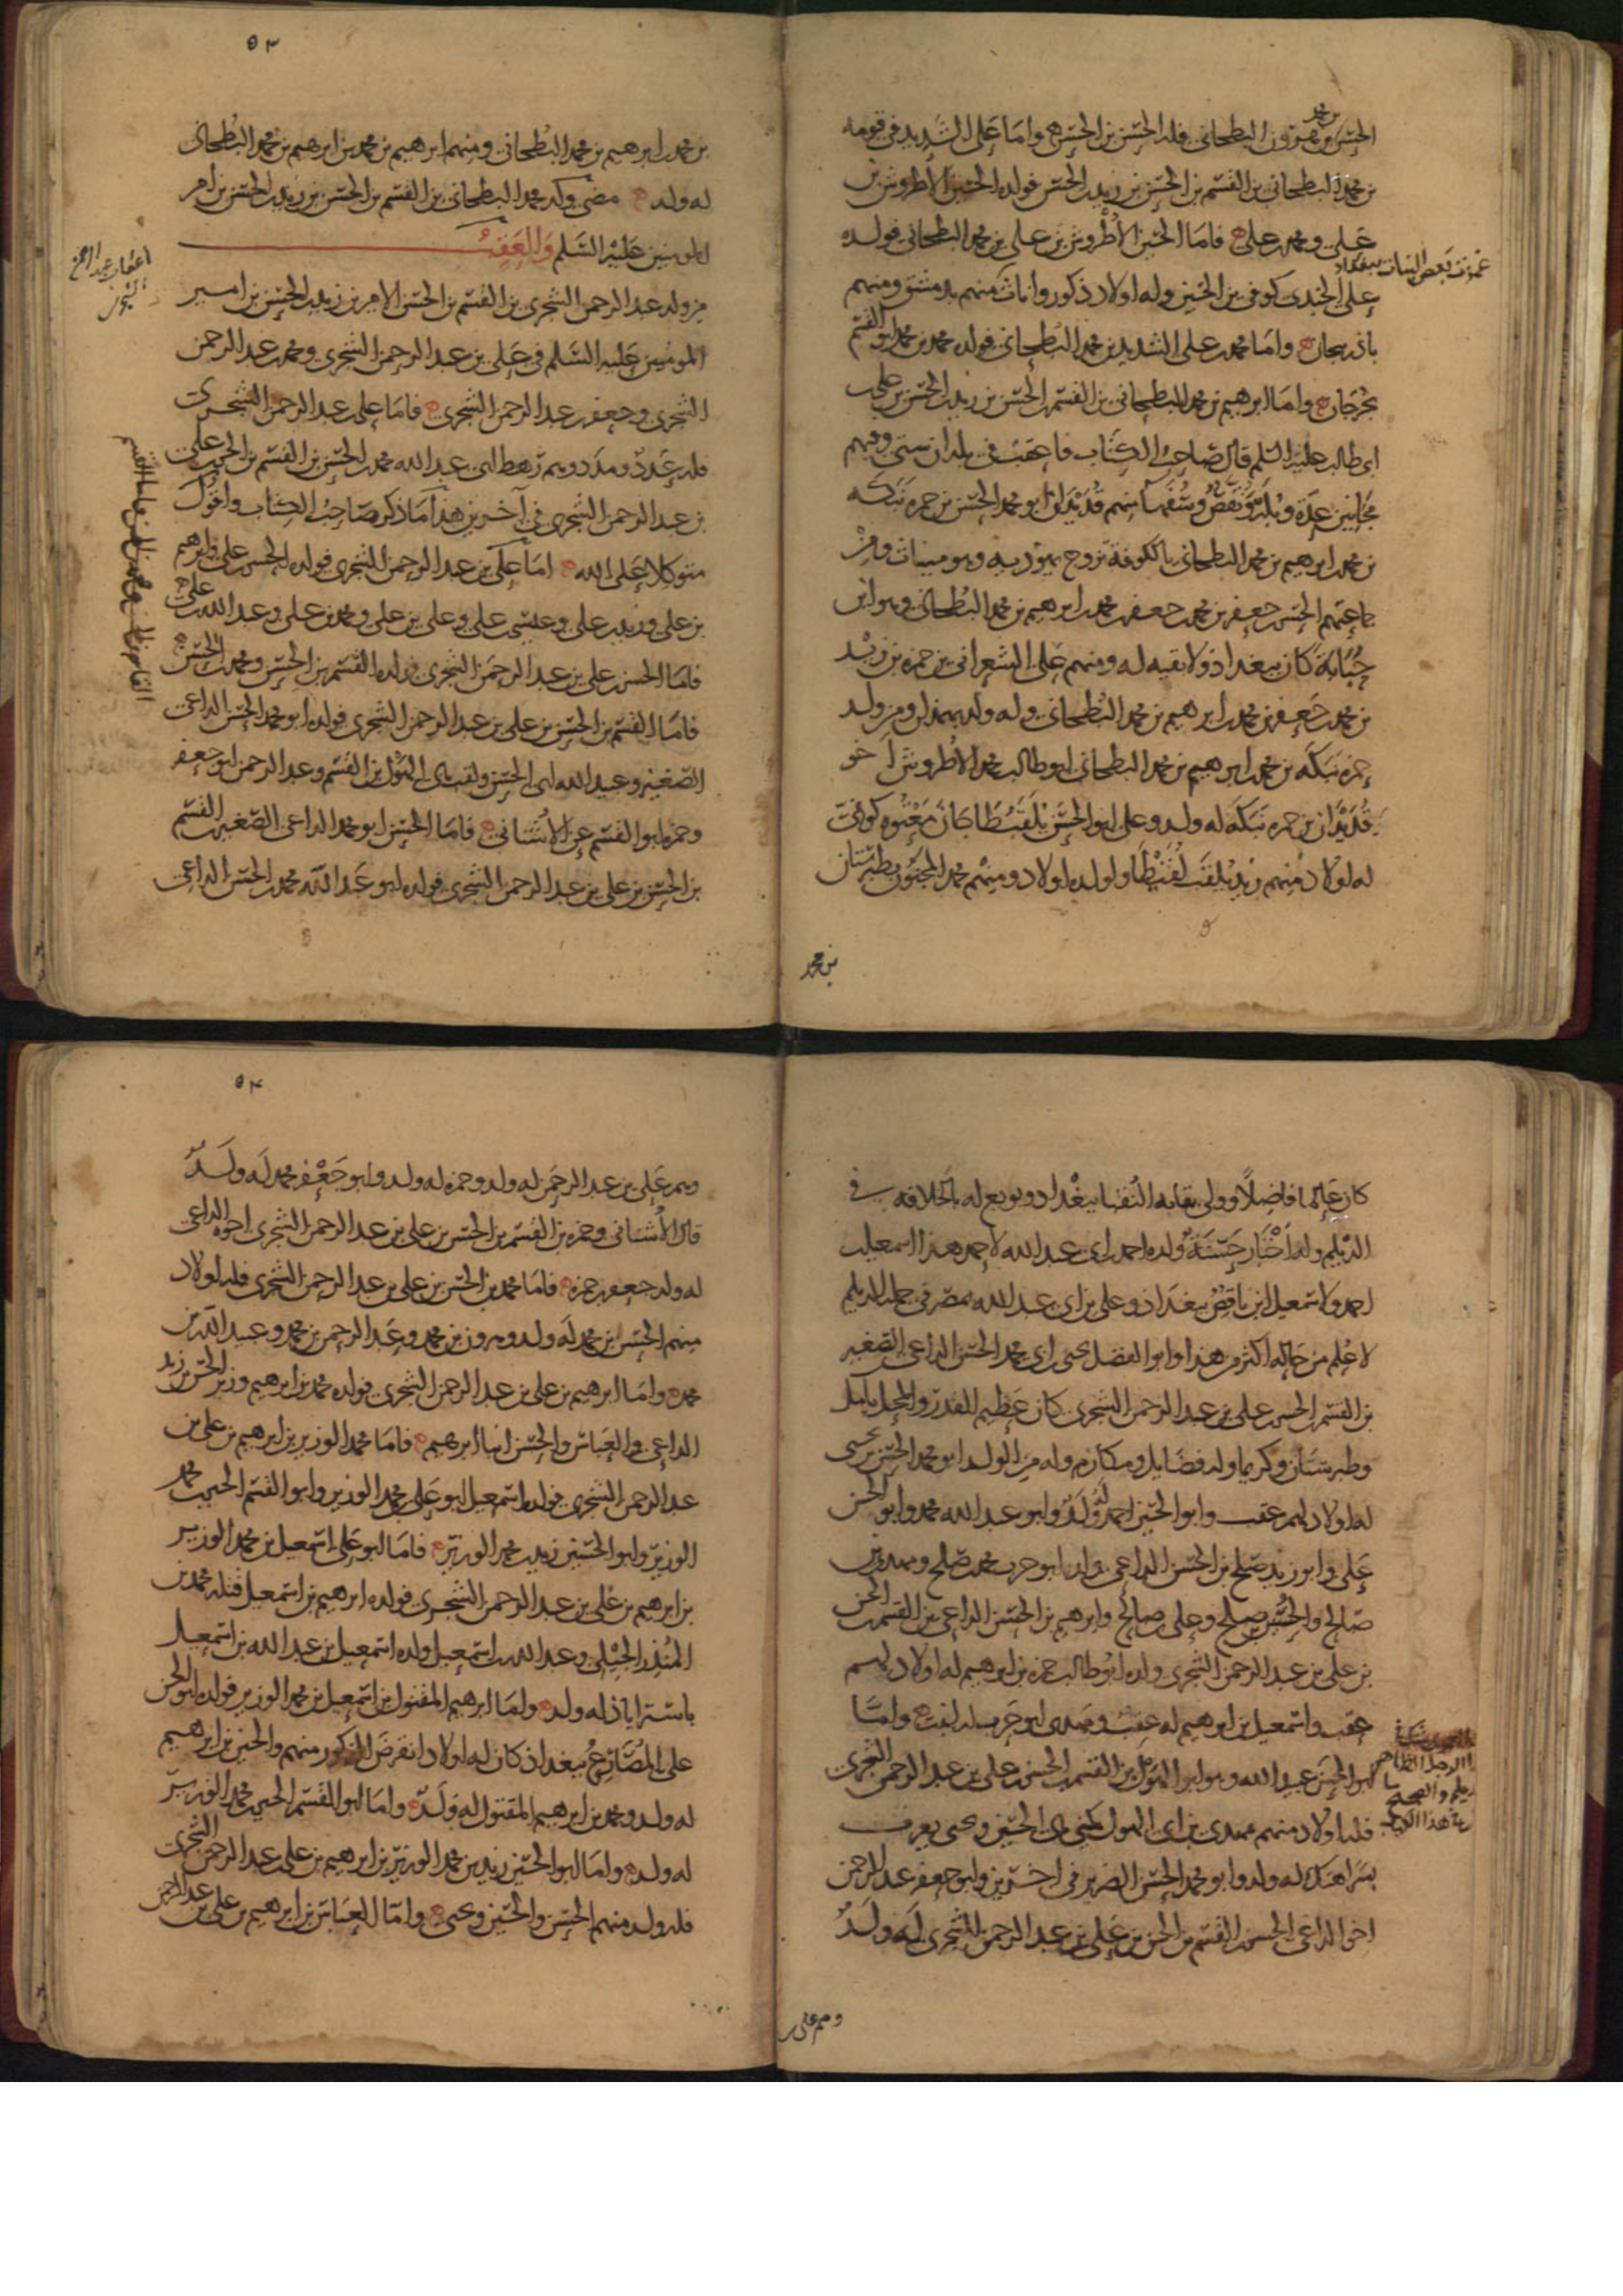 الحسن بن محمد بن هرون البطحاني فله الحسن بن الحسن وامّا على الشديد في قومه
بن محمد البطحاني بن القسم بن الحسن بن زيد بن الحسن فولده الحسين الاطروش بن
على ومحمد بن على فامّا الحسين الأطروش بن على بن محمد البطحاني فولده
على الجندى كوفى بن الحسين وله اولاد ذكور واناث منهم بدمشق ومنهم
باذربيجان وامّا محمد بن على الشديد بن محمد البطحاني فولده محمد بن محمد ابو القسم
بجرجان وامّا ابرهيم بن محمد البطحاني بن القسم بن الحسن بن زيد بن الحسن بن على بن
ابى طالب عليه السلم قال صاحب الكتاب فاعقب فى بلدان ستى وفيهم
مجانين عدة وبله ونقص وسفهآ منهم قديدان ابو محمد الحسن بن حمزه نبكه
بن محمد بن ابرهيم بن محمد البطحاني بالكوفة تزوج يهوديه وهو ميناث ومن
جماعتهم الحسن بن جعفر بن محمد بن جعفر بن محمد بن ابرهيم بن محمد البطحاني وهو ابن
حبابة كان ببغداد ولا بقيه له ومنهم على الشعرانى بن حمزه بن زيد
بن محمد بن جعفر بن محمد بن ابرهيم بن محمد البطحاني وله ولد بهمذان ومن ولد
حمزه نبكه بن محمد بن ابرهيم بن محمد البطحاني ابو طالب محمد الاطروش اخو
قديدان بن حمزه نبكه له ولد وعلى ابو الحسن يلقب كوفى
له اولاد منهم زيد يلقب ولولده اولاد ومنهم محمد المجنون بطبرستان
بن محمد
٥٣
بن محمد بن ابرهيم بن محمد البطحاني ومنهم ابرهيم بن محمد بن ابرهيم بن محمد البطحاني
له ولد مضى ولد محمد البطحاني بن القسم بن الحسن بن زيد بن الحسن بن أمير
المومنين عليه السلم والعقب
من ولد عبد الرحمن الشجرى بن القسم بن الحسن الامير بن زيد بن الحسن بن امير
المومنين عليه السلم فى على بن عبد الرحمن الشجرى ومحمد بن عبد الرحمن
الشجرى وجعفر بن عبد الرحمن الشجرى فامّا على بن عبد الرحمن الشجرى
فله عدد ومدد وهم رهط ابى عبد الله محمد بن الحسن بن القسم بن الحسن بن على
بن عبد الرحمن الشجرى فى آخرين هذا ما ذكر صاحب الكتاب واقول
متوكلا على الله امّا على بن عبد الرحمن الشجرى فولده الحسن بن على وابرهيم
بن على وزيد بن على وعيسى بن على وعلى بن على ومحمد بن على وعبد الله بن على
فامّا الحسن بن على بن عبد الرحمن الشجرى فولده القسم بن الحسن ومحمد بن الحسن
فامّا القسم بن الحسن بن على بن عبد الرحمن الشجرى فولده ابو محمد الحسن الداعى
الصغير وعبيد الله ابى الحسن ولقب بابى الهول بن القسم وعبد الرحمن ابو جعفر
وحمزه ابو القسم عن الأشنانى فامّا الحسن ابو محمد الداعى الصغير بن القسم
بن الحسن بن على بن عبد الرحمن الشجرى فولده ابو عبد الله محمد بن الحسن الداعى
كان عالما فاضلا وولى نقابه النقبا ببغداد وبويع له بالخلافه فى
الديلم وله أخبار حسنة ولده احمد بن ابى عبد الله لاحمد هذا اسمعيل بن
احمد ولاسمعيل ابن ناقص ببغداد وعلى بن ابى عبد الله بمصر فى جملة الديلم
لا علم من حاله اكثر من هذا وابو الفضل يحيى بن ابى محمد الحسن الداعى الصغير
بن القسم بن الحسن بن على بن عبد الرحمن الشجرى كان عظيم القدر والمحل بآمل
وطبرستان وكريما وله فضايل ومكارم وله من الولد ابو محمد الحسن بن يحيى
له اولاد لهم عقب وابو الحسين احمد له ولد وابو عبد الله محمد وابو الحسن
على وابو زيد صلح بن الحسن الداعى ولد ابو حرب محمد بن صلح ومهدى بن
صالح والحسن بن صلح وعلى بن صالح وابرهيم بن الحسن الداعى بن القسم بن الحسن
بن على بن عبد الرحمن الشجرى ولده ابو طالب حمزه بن ابرهيم له اولاد لهم
عقب واسمعيل بن ابرهيم له عقب ومهدى ابو حرب وامّا
ابو الحسن عبيد الله وهو ابو الهول بن القسم بن الحسن بن على بن عبد الرحمن الشجرى
فله اولاد منهم مهدى بن ابى الهول كنى بابى الحسين ويحيى يعرف
بسراهنك له ولد وابو محمد الحسن الضرير فى اخرين وابو جعفر عبد الرحمن
اخو الداعى الحسن بن القسم بن الحسن بن على بن عبد الرحمن الشجرى له ولد
وهم على بن
٥٤
وهم على بن عبد الرحمن له ولد وحمزه له ولد وابو جعفر محمد له ولد
قال الأشنانى وحمزه بن القسم بن الحسن بن على بن عبد الرحمن الشجرى اخوه الداعى
له ولد جعفر بن حمزه فامّا محمد بن الحسن بن على بن عبد الرحمن الشجرى فله اولاد
منهم الحسن بن محمد له ولد وهرون بن محمد وعبد الرحمن بن محمد وعبيد الله بن
محمد وامّا ابرهيم بن على بن عبد الرحمن الشجرى فولده محمد بن ابرهيم وزير الحسن بن زيد
الداعى والعباس والحسن ابنا ابرهيم فامّا محمد الوزير بن ابرهيم بن على بن
عبد الرحمن الشجرى فولده اسمعيل ابو على بن محمد الوزير وابو القسم الحسين بن محمد
الوزير وابو الحسين زيد بن محمد الوزير فامّا ابو على اسمعيل بن محمد الوزير
بن ابرهيم بن على بن عبد الرحمن الشجرى فولده ابرهيم بن اسمعيل قتله محمد بن
المنذر الجيلى وعبد الله بن اسمعيل ولده اسمعيل بن عبد الله بن اسمعيل
باستراباذ له ولد وامّا ابرهيم المقتول بن اسمعيل بن محمد الوزير فولده ابو الحسن
على المصارع ببغداذ كان له اولاد انقرض الذكور منهم والحسين بن ابرهيم
له ولد ومحمد بن ابرهيم المقتول له ولد وامّا ابو القسم الحسين بن محمد الوزير
له ولد وامّا ابو الحسين زيد بن محمد الوزير بن ابرهيم بن على بن عبد الرحمن الشجرى
فله ولد منهم الحسن والحسين ويحيى وامّا العباس بن ابرهيم بن على بن عبد الرحمن